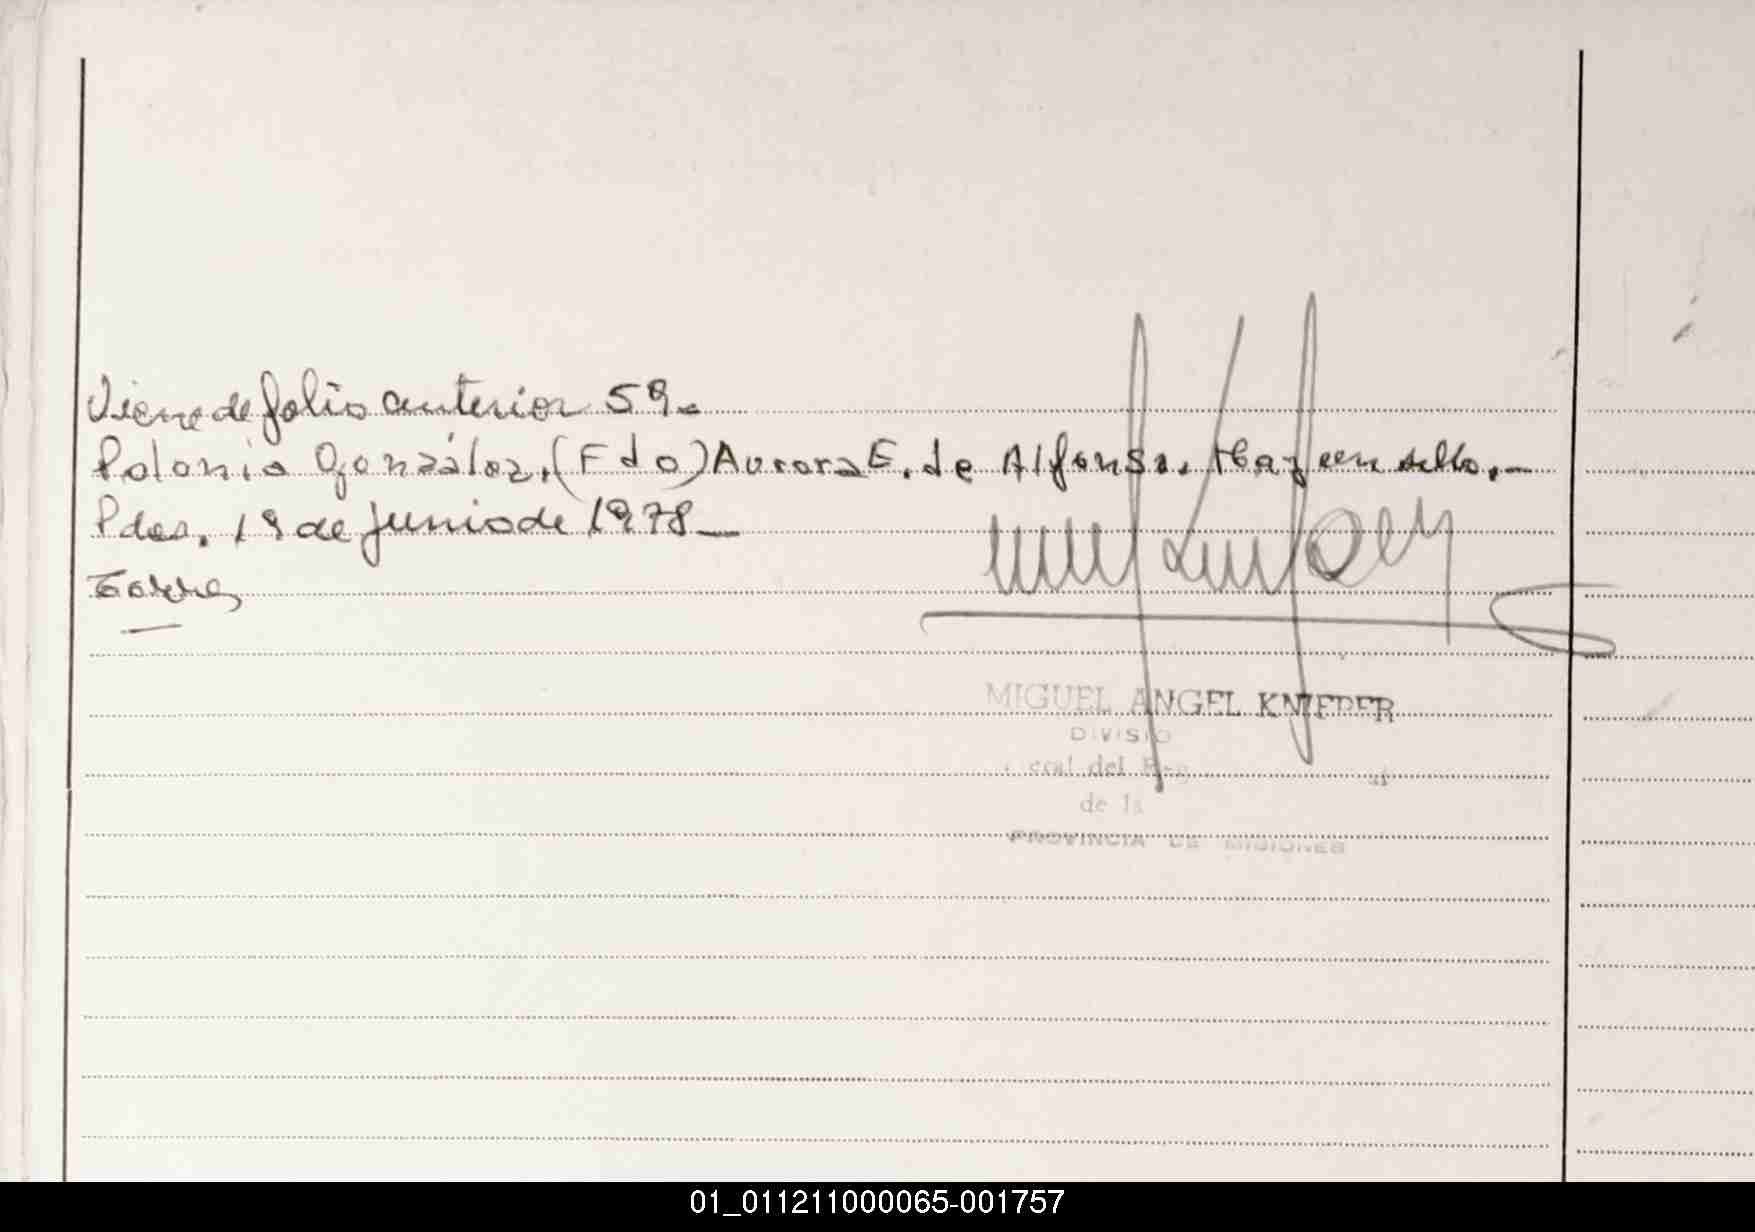 Viene de folio anterior 59.
Polonia González. (Fdo) Aurora E. de Alfonso. Hay un sello.-
Pdas. 19 de junio de 1978_
MIGUEL ANGEL KNIEPER
DIVISIO
de la
PROVINCIA DE MISIONES
01_011211000065-001757